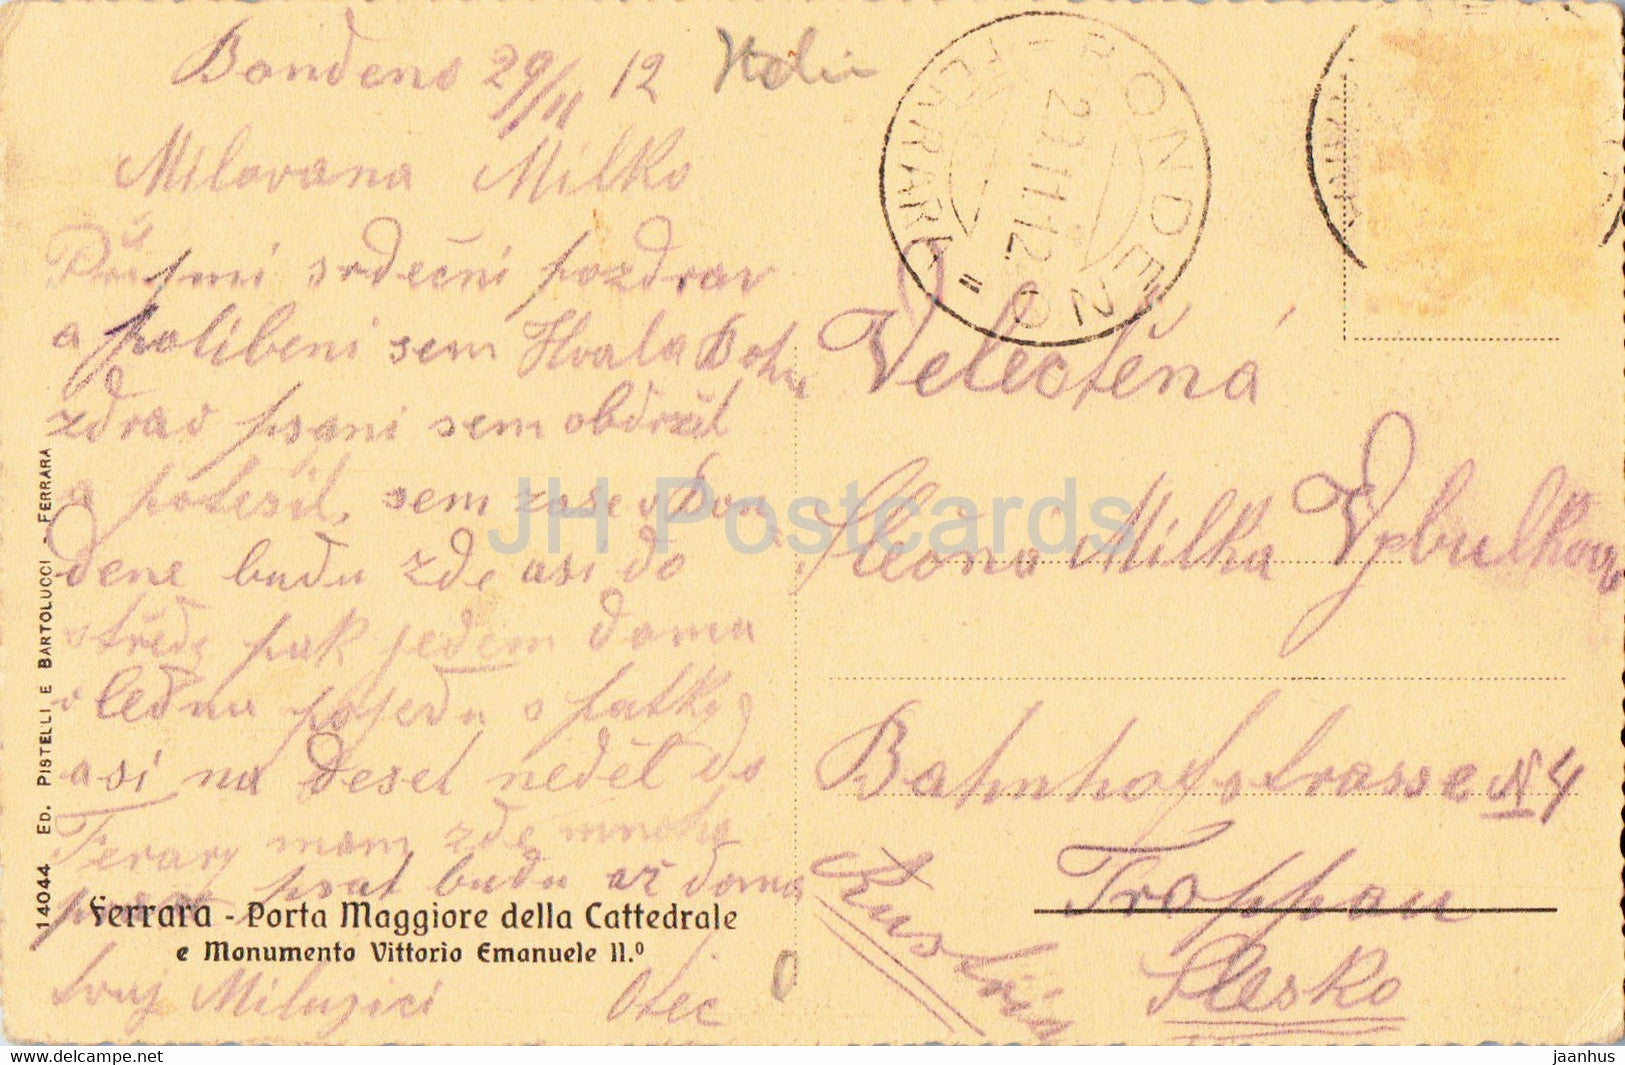 Bondeno 29/11 12 Italie
Milovana Milko
Přijmi srdečni pozdrav
a polibeni sem Hvala Bohu
zdrav psani sem obdržel
a potešil, sem zase v Bon
dene budu zde asi do
středy pak jedem domu
v lednu pojedu s
asi na deset neděl do
Ferary mam zde mnoho
psat budu až doma
tvuj Milujici Otec
BONDENO
29.11.12
FERRARA
Velectěná
Slečna Milka
Bahnhofstrasse N 4
Troppau
Slesko
Austria
14044 ED. PISTELLI E BARTOLUCCI - FERRARA
Ferrara - Porta Maggiore della Cattedrale
e Monumento Vittorio Emanuele II.º
JH Postcards
www.delcampe.net
jaanhus